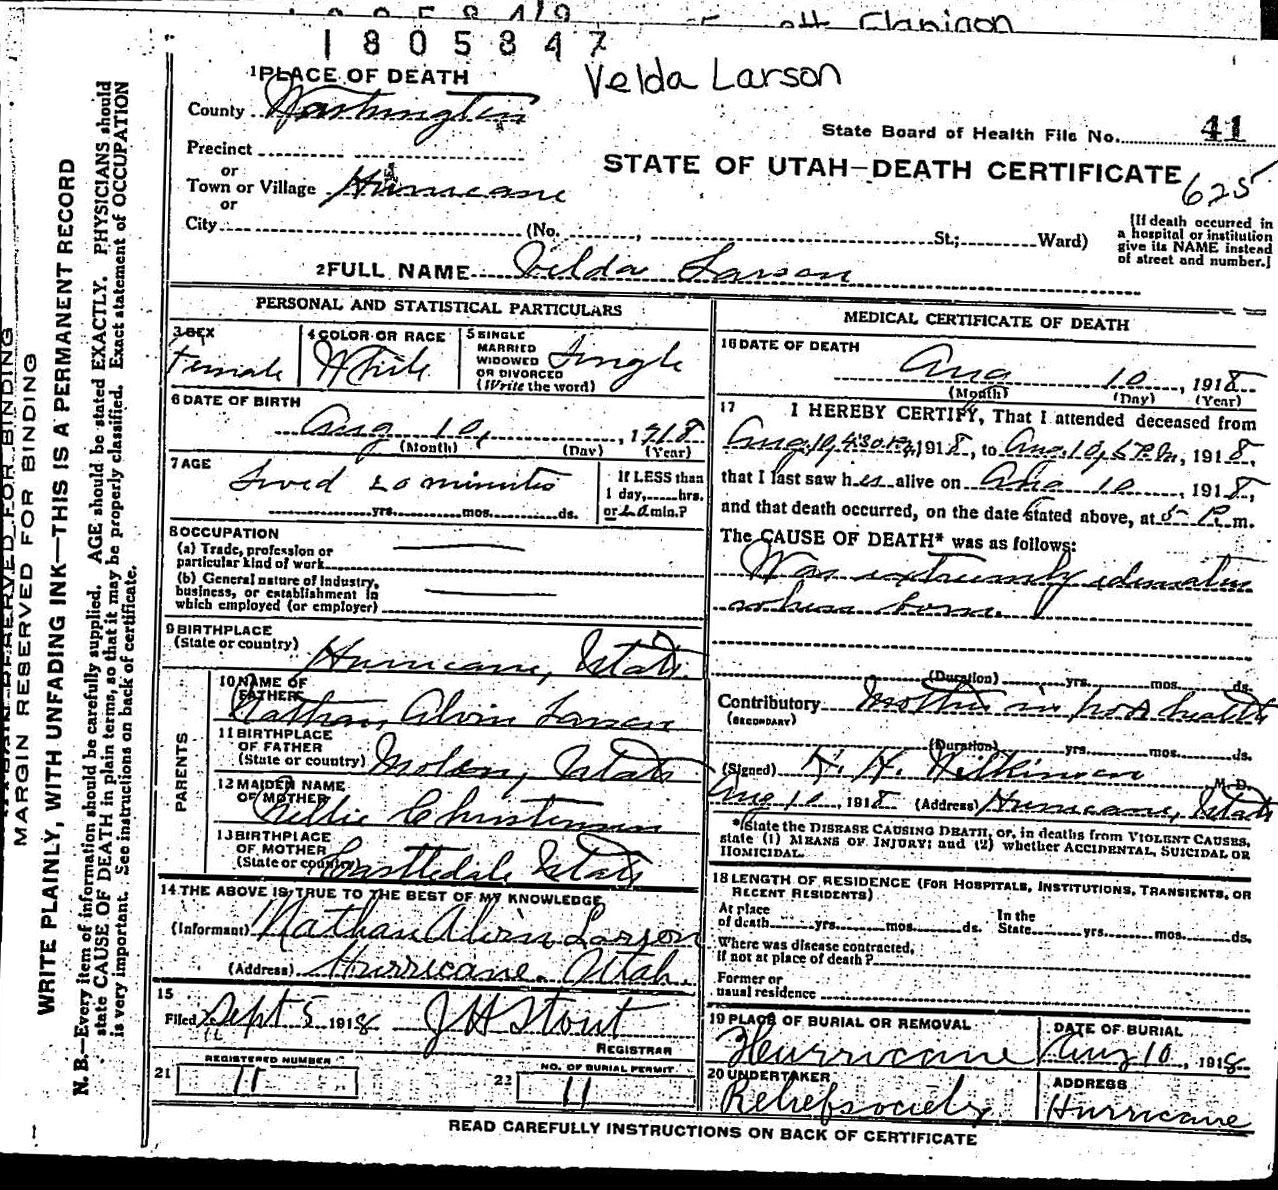 1805847
Velda Larson
1 PLACE OF DEATH
County Washington
State Board of Health File No. 41
Precinct
or
Town or Village Hurricane
or
STATE OF UTAH—DEATH CERTIFICATE
625
City (No. , St.; Ward)
[If death occurred in
a hospital or institution
give its NAME instead
of street and number.]
2 FULL NAME Velda Larson
MARGIN RESERVED FOR BINDING
WRITE PLAINLY, WITH UNFADING INK—THIS IS A PERMANENT RECORD
N. B.—Every item of information should be carefully supplied. AGE should be stated EXACTLY. PHYSICIANS should
state CAUSE OF DEATH in plain terms, so that it may be properly classified. Exact statement of OCCUPATION
is very important. See instructions on back of certificate.
PERSONAL AND STATISTICAL PARTICULARS
3 SEX
Female
4 COLOR OR RACE
White
5 SINGLE
MARRIED
WIDOWED
OR DIVORCED
(Write the word)
Single
6 DATE OF BIRTH
Aug 10, , 1918
(Month) (Day) (Year)
7 AGE
Lived 20 minutes
yrs. mos. ds.
If LESS than
1 day, hrs.
or 20 min.?
8 OCCUPATION
(a) Trade, profession or
particular kind of work
(b) General nature of Industry,
business, or establishment in
which employed (or employer)
9 BIRTHPLACE
(State or country)
Hurricane, Utah.
PARENTS
10 NAME OF
FATHER
Nathan Alvin Larson
11 BIRTHPLACE
OF FATHER
(State or country) Molen, Utah
12 MAIDEN NAME
OF MOTHER
Nellie Christensen
13 BIRTHPLACE
OF MOTHER
(State or country) Castledale Utah
14 THE ABOVE IS TRUE TO THE BEST OF MY KNOWLEDGE
(Informant) Nathan Alvin Larson
(Address) Hurricane. Utah.
15
Filed Sept 5 1918 J H Stout
REGISTRAR
21 REGISTERED NUMBER
11
22 NO. OF BURIAL PERMIT
11
MEDICAL CERTIFICATE OF DEATH
16 DATE OF DEATH
Aug 10 , 1918
(Month) (Day) (Year)
17 I HEREBY CERTIFY, That I attended deceased from
Aug. 10, 4:30 P.M., 1918, to Aug. 10, 5 P.M., 1918,
that I last saw her alive on Aug 10 , 1918,
and that death occurred, on the date stated above, at 5 P.m.
The CAUSE OF DEATH* was as follows:
Was extremely
when born.
(Duration) yrs. mos. ds.
Contributory Mother in poor health
(SECONDARY)
(Duration) yrs. mos. ds.
(Signed) Wilkinson M. D.
Aug 10 , 1918 (Address) Hurricane, Utah
*State the DISEASE CAUSING DEATH, or, in deaths from VIOLENT CAUSES,
state (1) MEANS OF INJURY; and (2) whether ACCIDENTAL, SUICIDAL OR
HOMICIDAL.
18 LENGTH OF RESIDENCE (FOR HOSPITALS, INSTITUTIONS, TRANSIENTS, OR
RECENT RESIDENTS)
At place
of death yrs. mos. ds. In the
State yrs. mos. ds.
Where was disease contracted,
if not at place of death?
Former or
usual residence
19 PLACE OF BURIAL OR REMOVAL
Hurricane
DATE OF BURIAL
Aug 10 , 1918
20 UNDERTAKER
Relief society
ADDRESS
Hurricane
READ CAREFULLY INSTRUCTIONS ON BACK OF CERTIFICATE